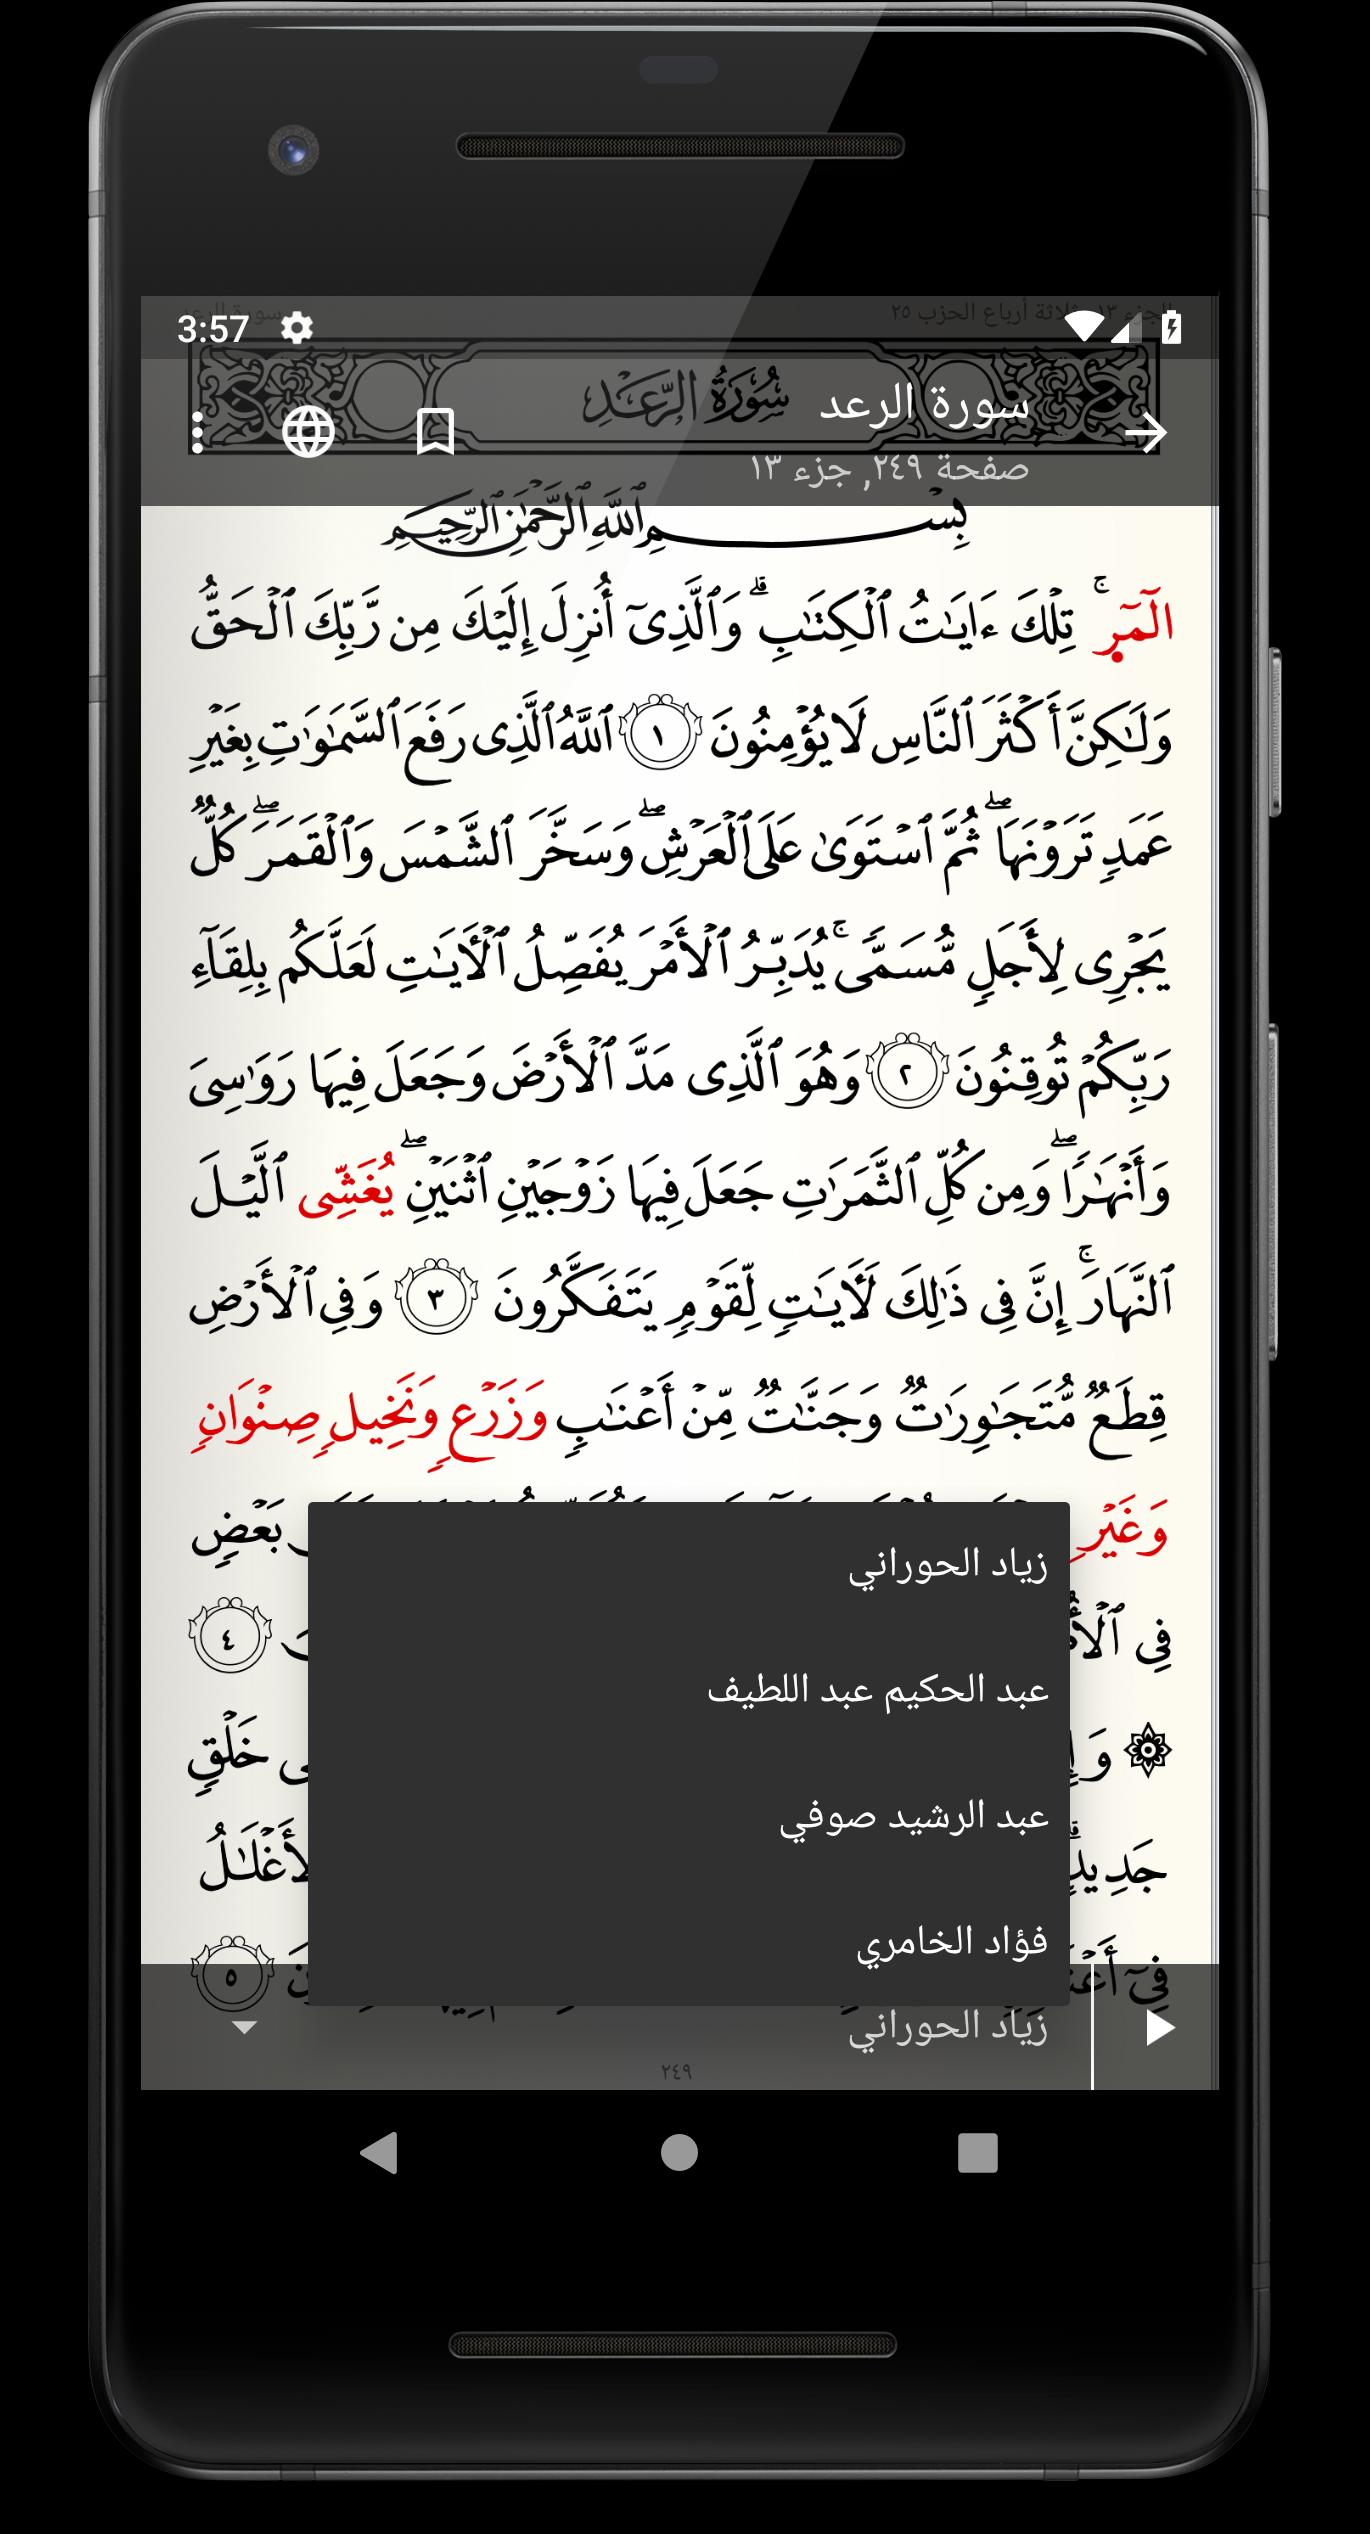 الجزء ١٣ ثلاثة أرباع الحزب ٢٥
سورة الرعد
3:57
سُورَةُ الرَّعْدِ
سورة الرعد
صفحة ٢٤٩, جزء ١٣
بِسْمِ ٱللَّهِ ٱلرَّحْمَٰنِ ٱلرَّحِيمِ
الٓمٓرۚ تِلْكَ ءَايَٰتُ ٱلْكِتَٰبِۗ وَٱلَّذِىٓ أُنزِلَ إِلَيْكَ مِن رَّبِّكَ ٱلْحَقُّ
وَلَٰكِنَّ أَكْثَرَ ٱلنَّاسِ لَا يُؤْمِنُونَ ١ ٱللَّهُ ٱلَّذِى رَفَعَ ٱلسَّمَٰوَٰتِ بِغَيْرِ
عَمَدٍ تَرَوْنَهَاۖ ثُمَّ ٱسْتَوَىٰ عَلَى ٱلْعَرْشِۖ وَسَخَّرَ ٱلشَّمْسَ وَٱلْقَمَرَۖ كُلٌّ
يَجْرِى لِأَجَلٍ مُّسَمًّىۚ يُدَبِّرُ ٱلْأَمْرَ يُفَصِّلُ ٱلْأَيَٰتِ لَعَلَّكُم بِلِقَآءِ
رَبِّكُمْ تُوقِنُونَ ٢ وَهُوَ ٱلَّذِى مَدَّ ٱلْأَرْضَ وَجَعَلَ فِيهَا رَوَٰسِىَ
وَأَنْهَٰرًاۖ وَمِن كُلِّ ٱلثَّمَرَٰتِ جَعَلَ فِيهَا زَوْجَيْنِ ٱثْنَيْنِۖ يُغَشِّى ٱلَّيْلَ
ٱلنَّهَارَۚ إِنَّ فِى ذَٰلِكَ لَأَيَٰتٍ لِّقَوْمٍ يَتَفَكَّرُونَ ٣ وَفِى ٱلْأَرْضِ
قِطَعٌ مُّتَجَٰوِرَٰتٌ وَجَنَّٰتٌ مِّنْ أَعْنَٰبٍ وَزَرْعٍ وَنَخِيلٍ صِنْوَانٍ
وَغَيْرِ بَعْضٍ
فِى ٤
وَ خَلْقٍ
جَدِيدٍۗ
فِىٓ ٥
زياد الحوراني
عبد الحكيم عبد اللطيف
عبد الرشيد صوفي
فؤاد الخامري
زياد الحوراني
٢٤٩